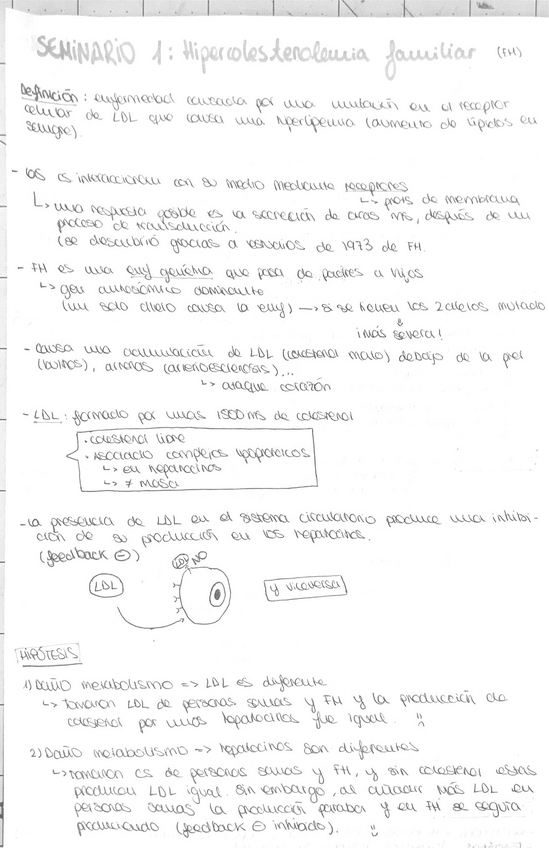 SEMINARIO 1: Hipercolesterolemia familiar (FH)
Definición: enfermedad causada por una mutación en el receptor
celular de LDL que causa una hiperlipemia (aumento de lípidos en
sangre).
- las cs interaccionan con su medio mediante receptores
↳ prots de membrana
↳ una respuesta posible es la secreción de otras ms, después de un
proceso de transducción.
(se descubrió gracias a estudios de 1973 de FH.
- FH es una enf genética que pasa de padres a hijos
↳ gen autosómico dominante
(un solo alelo causa la enf) → si se tienen los 2 alelos mutado
↓
¡más severa!
- causa una acumulación de LDL (colesterol malo) debajo de la piel
(bultos), arterias (arterioesclerosis)...
↳ ataque corazón
- LDL: formado por unas 1500 ms de colesterol
· colesterol libre
· Asociado complejos lipoproteicos
↳ en hepatocitos
↳ ≠ masa
- la presencia de LDL en el sistema circulatorio produce una inhibi-
ción de su producción en los hepatocitos.
(feedback ⊖)
LDL NO
LDL
y viceversa
HIPÓTESIS
1) Daño metabolismo => LDL es diferente
↳ Tomaron LDL de personas sanas y FH y la producción de
colesterol por unos hepatocitos fue igual.
2) Daño metabolismo => hepatocitos son diferentes
↳ tomaron cs de personas sanas y FH, y sin colesterol estas
producen LDL igual. Sin embargo, al añadir más LDL en
personas sanas la producción paraba y en FH se seguía
produciendo (feedback ⊖ inhibido).